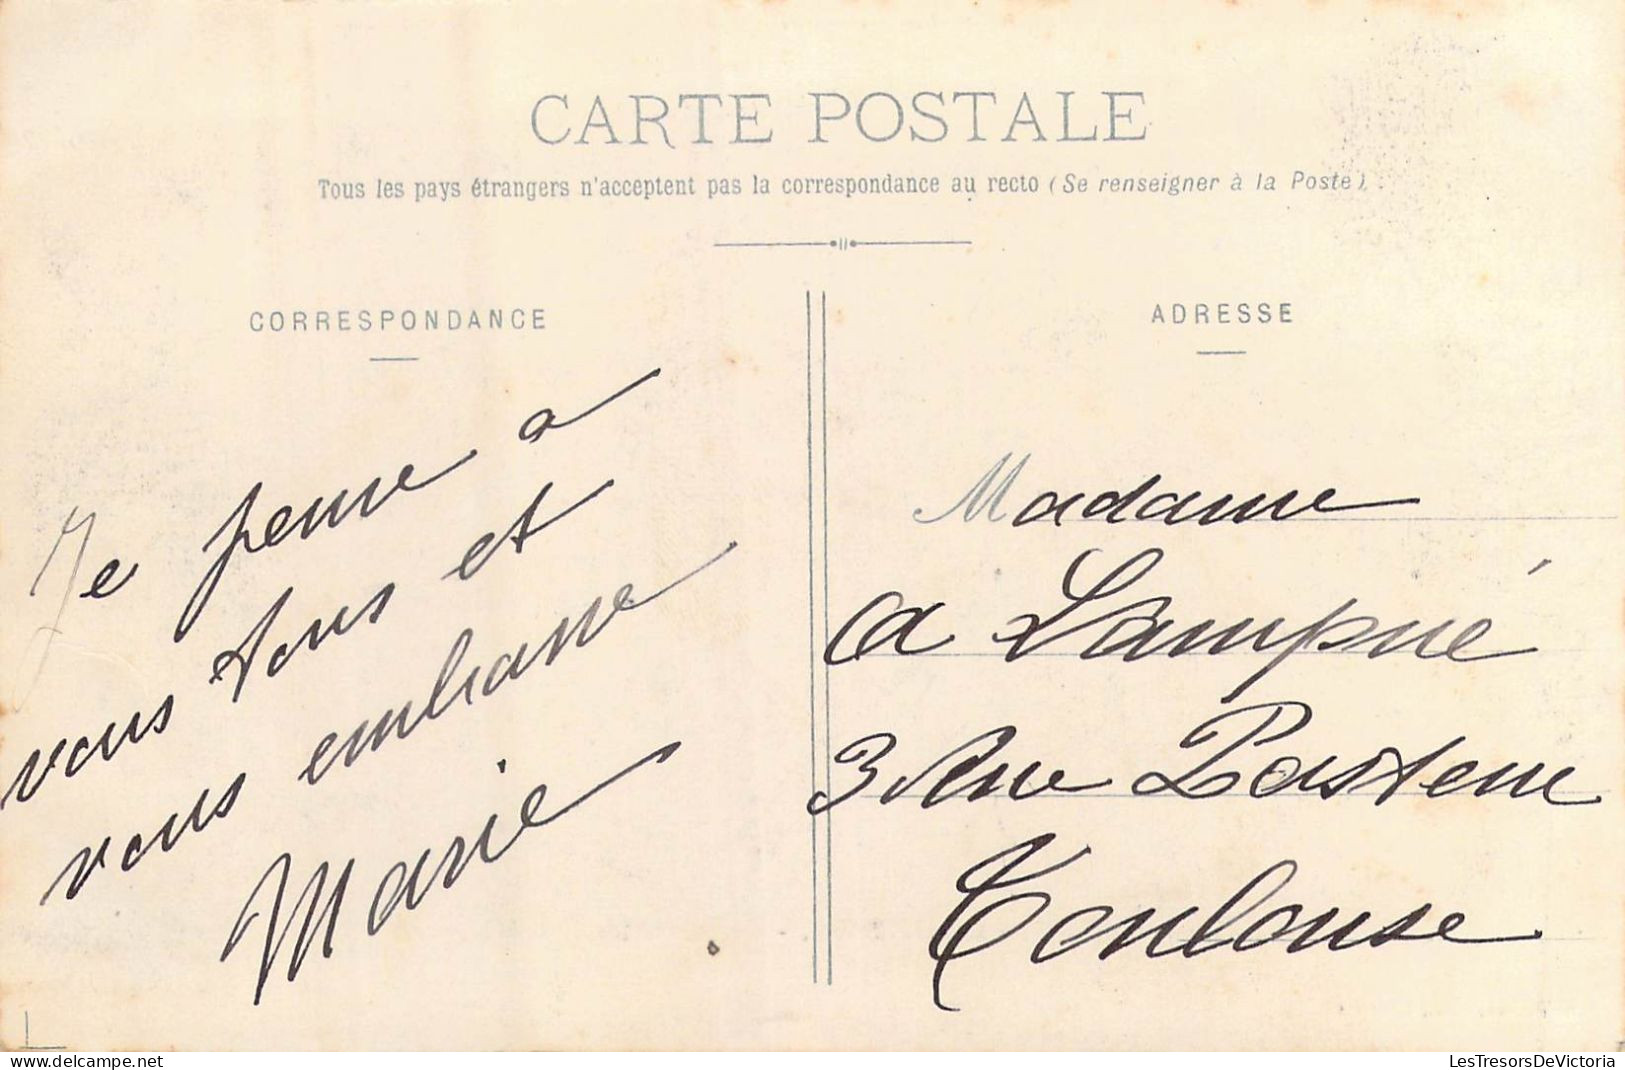 CARTE POSTALE
Tous les pays étrangers n'acceptent pas la correspondance au recto (Se renseigner à la Poste)
CORRESPONDANCE
Je pense a
vous tous et
vous embrasse
Marie
ADRESSE
Madame
a Lampué
3 Rue Pasteur
Toulouse
delcampe.net
LesTresorsDeVictoria